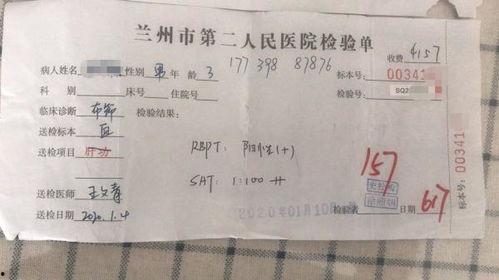 兰州市第二人民医院检验单
收费 4157
病人姓名 性别 男 年龄 3 177398 87876 标本号: 00341
科别 床号 住院号 检验号: SQ2
临床诊断 布病 检验结果:
送检标本 血
送检项目 肝功 RBPT: 阳性(+)
SAT: 1:100 ++
157
送检医师 王文青
送检日期 2020.1.4 2020年01月10日 检验者 617
标本号: 00341